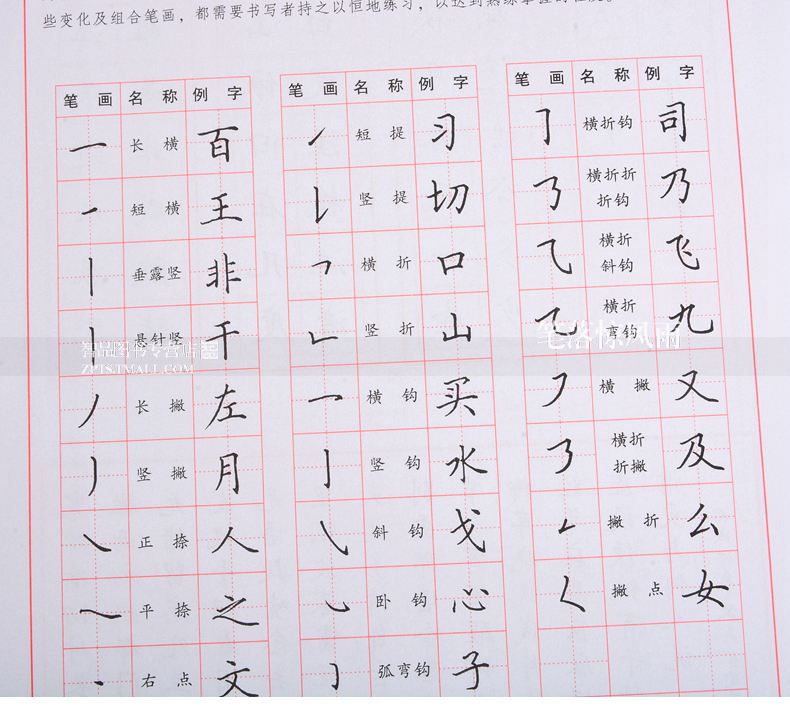 些变化及组合笔画，都需要书写者持之以恒地练习，以达到熟练掌握的
笔画 名称 例字
一 长横 百
短横 王
丨 垂露竖 非
丨 悬针竖 干
丿 长撇 左
丿 竖撇 月
㇏ 正捺 人
㇏ 平捺 之
右点 文
笔画 名称 例字
㇀ 短提 习
竖提 切
㇕ 横折 口
㇗ 竖折 山
㇖ 横钩 买
亅 竖钩 水
㇂ 斜钩 戈
㇃ 卧钩 心
㇁ 弧弯钩 子
笔画 名称 例字
㇆ 横折钩 司
㇡ 横折折
折钩 乃
⺄ 横折
斜钩 飞
㇈ 横折
弯钩 九
㇇ 横撇 又
㇋ 横折
折撇 及
㇜ 撇折 么
㇛ 撇点 女
智品图书专营店
ZPTS.TMALL.COM
笔落惊风雨